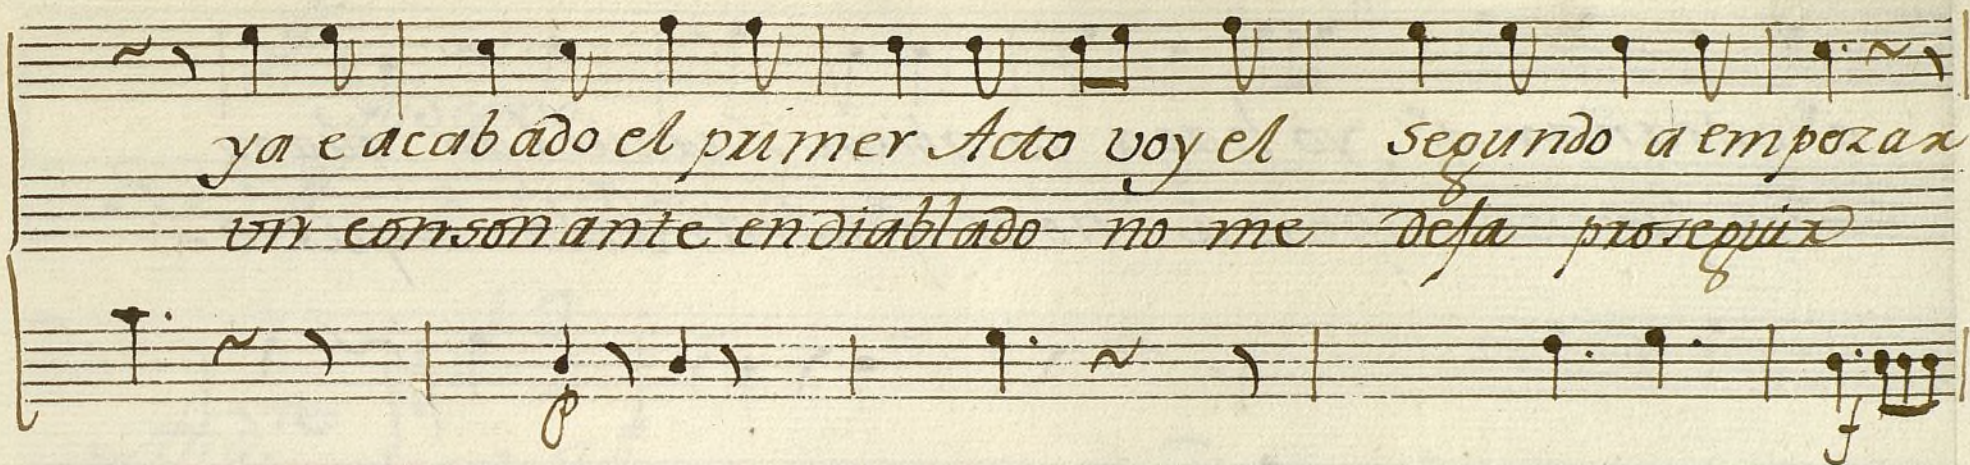 ya e acabado el primer Acto voy el segundo a empezar
un consonante endiablado no me defa proseguir
p
f